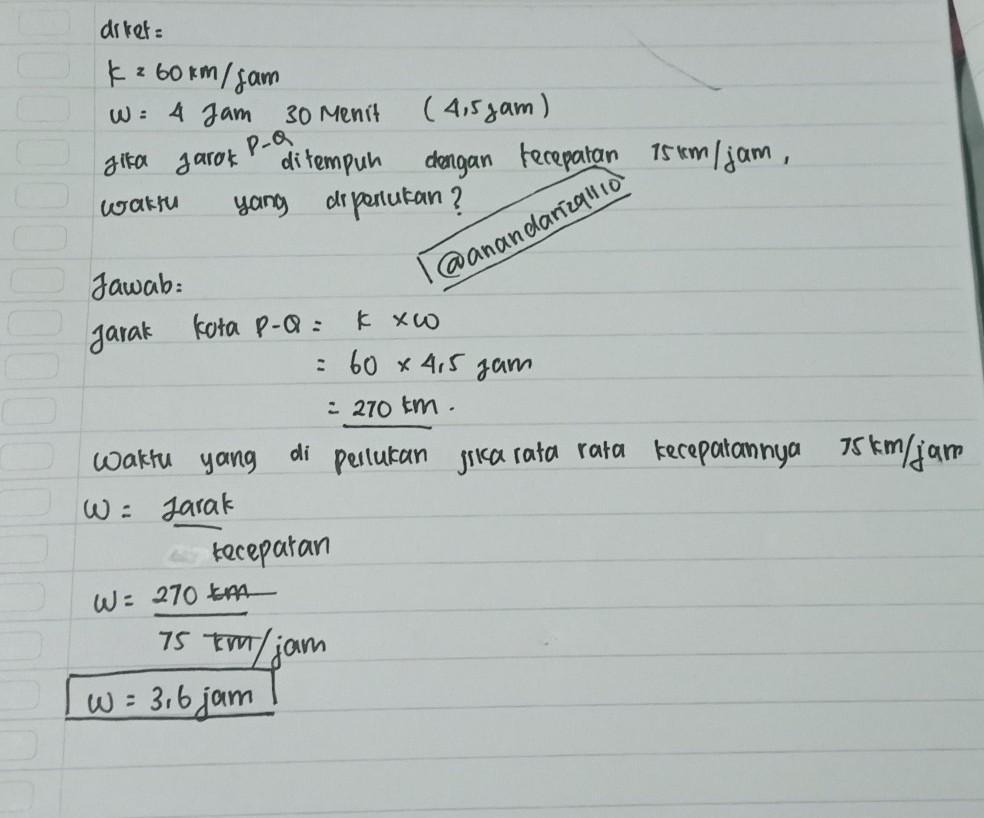 diket =
k = 60 km/jam
w = 4 Jam 30 Menit (4,5 jam)
jika jarak P-Q ditempuh dengan kecepatan 75 km/jam,
waktu yang diperlukan?
@anandarizq1110
Jawab:
jarak kota P-Q = k x w
= 60 x 4,5 jam
= 270 km.
waktu yang di perlukan jika rata rata kecepatannya 75 km/jam
w = Jarak
kecepatan
w = 270 km
75 km/jam
w = 3,6 jam